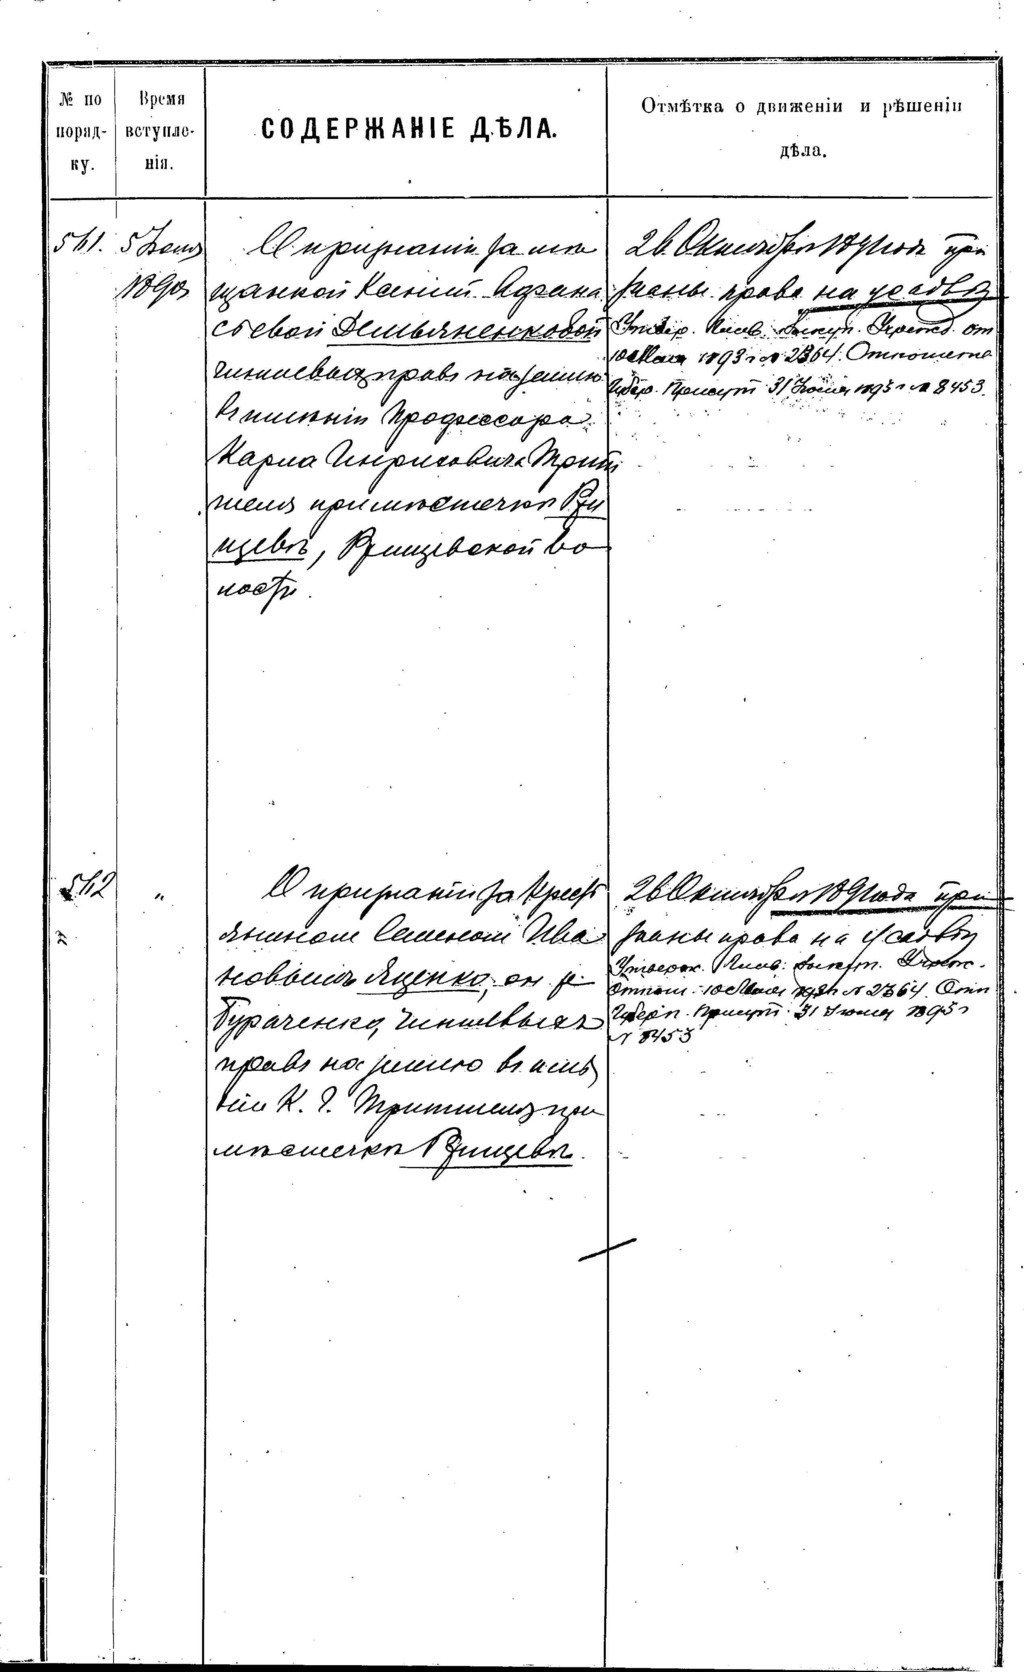 № по
поряд-
ку.
Время
вступле-
нія.
СОДЕРЖАНІЕ ДѢЛА.
Отмѣтка о движеніи и рѣшеніи
дѣла.
541.
5
О признаніи за мѣ
щанкой Ксеніей Афана
сьевой Демьяненковой
чиншевыхъ правъ на землю
въ имѣніи Профессора
Карла Генриховича Трит
шеля при мѣстечкѣ Ржи
щевѣ, Ржищевской во
лости.
26 Октября 1891 года при
знаны права на усадьбу
Утвер. Выкуп. от
10 Мая 1893 г № 2364. Отношеніе
Губер. Присут 31 1895 г № 8453.
542
"
О признаніи за Крест
яниномъ Семеномъ Ива
новымъ Яценко, он же
Бураченко, Чиншевыхъ
правъ на землю въ имѣ
ніи К. Г. Тритшеля при
мѣстечкѣ Ржищевѣ.
26 Октября 1891 года при
знаны права на Усадьбу
Утвержд.
Отнош. 10 Мая № 2364. Отн
Губерн. Присут. 31 1895 г
№ 8453